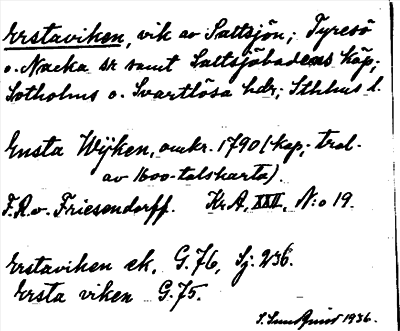 Erstaviken, vik av Saltsjön; Tyresö
o. Nacka sr samt Saltsjöbadens köp;
Sotholms o. Svartlösa hdr; Sthlms l.
Ensta Wÿken, omkr. 1790 (kop; trol.
av 1600-talskarta).
F.R.v. Friesendorff. Kr.A. XXII, N:o 19.
Erstaviken ek, G.76, Sj: 236.
Ersta viken G.75.
S. Sundquist 1936.